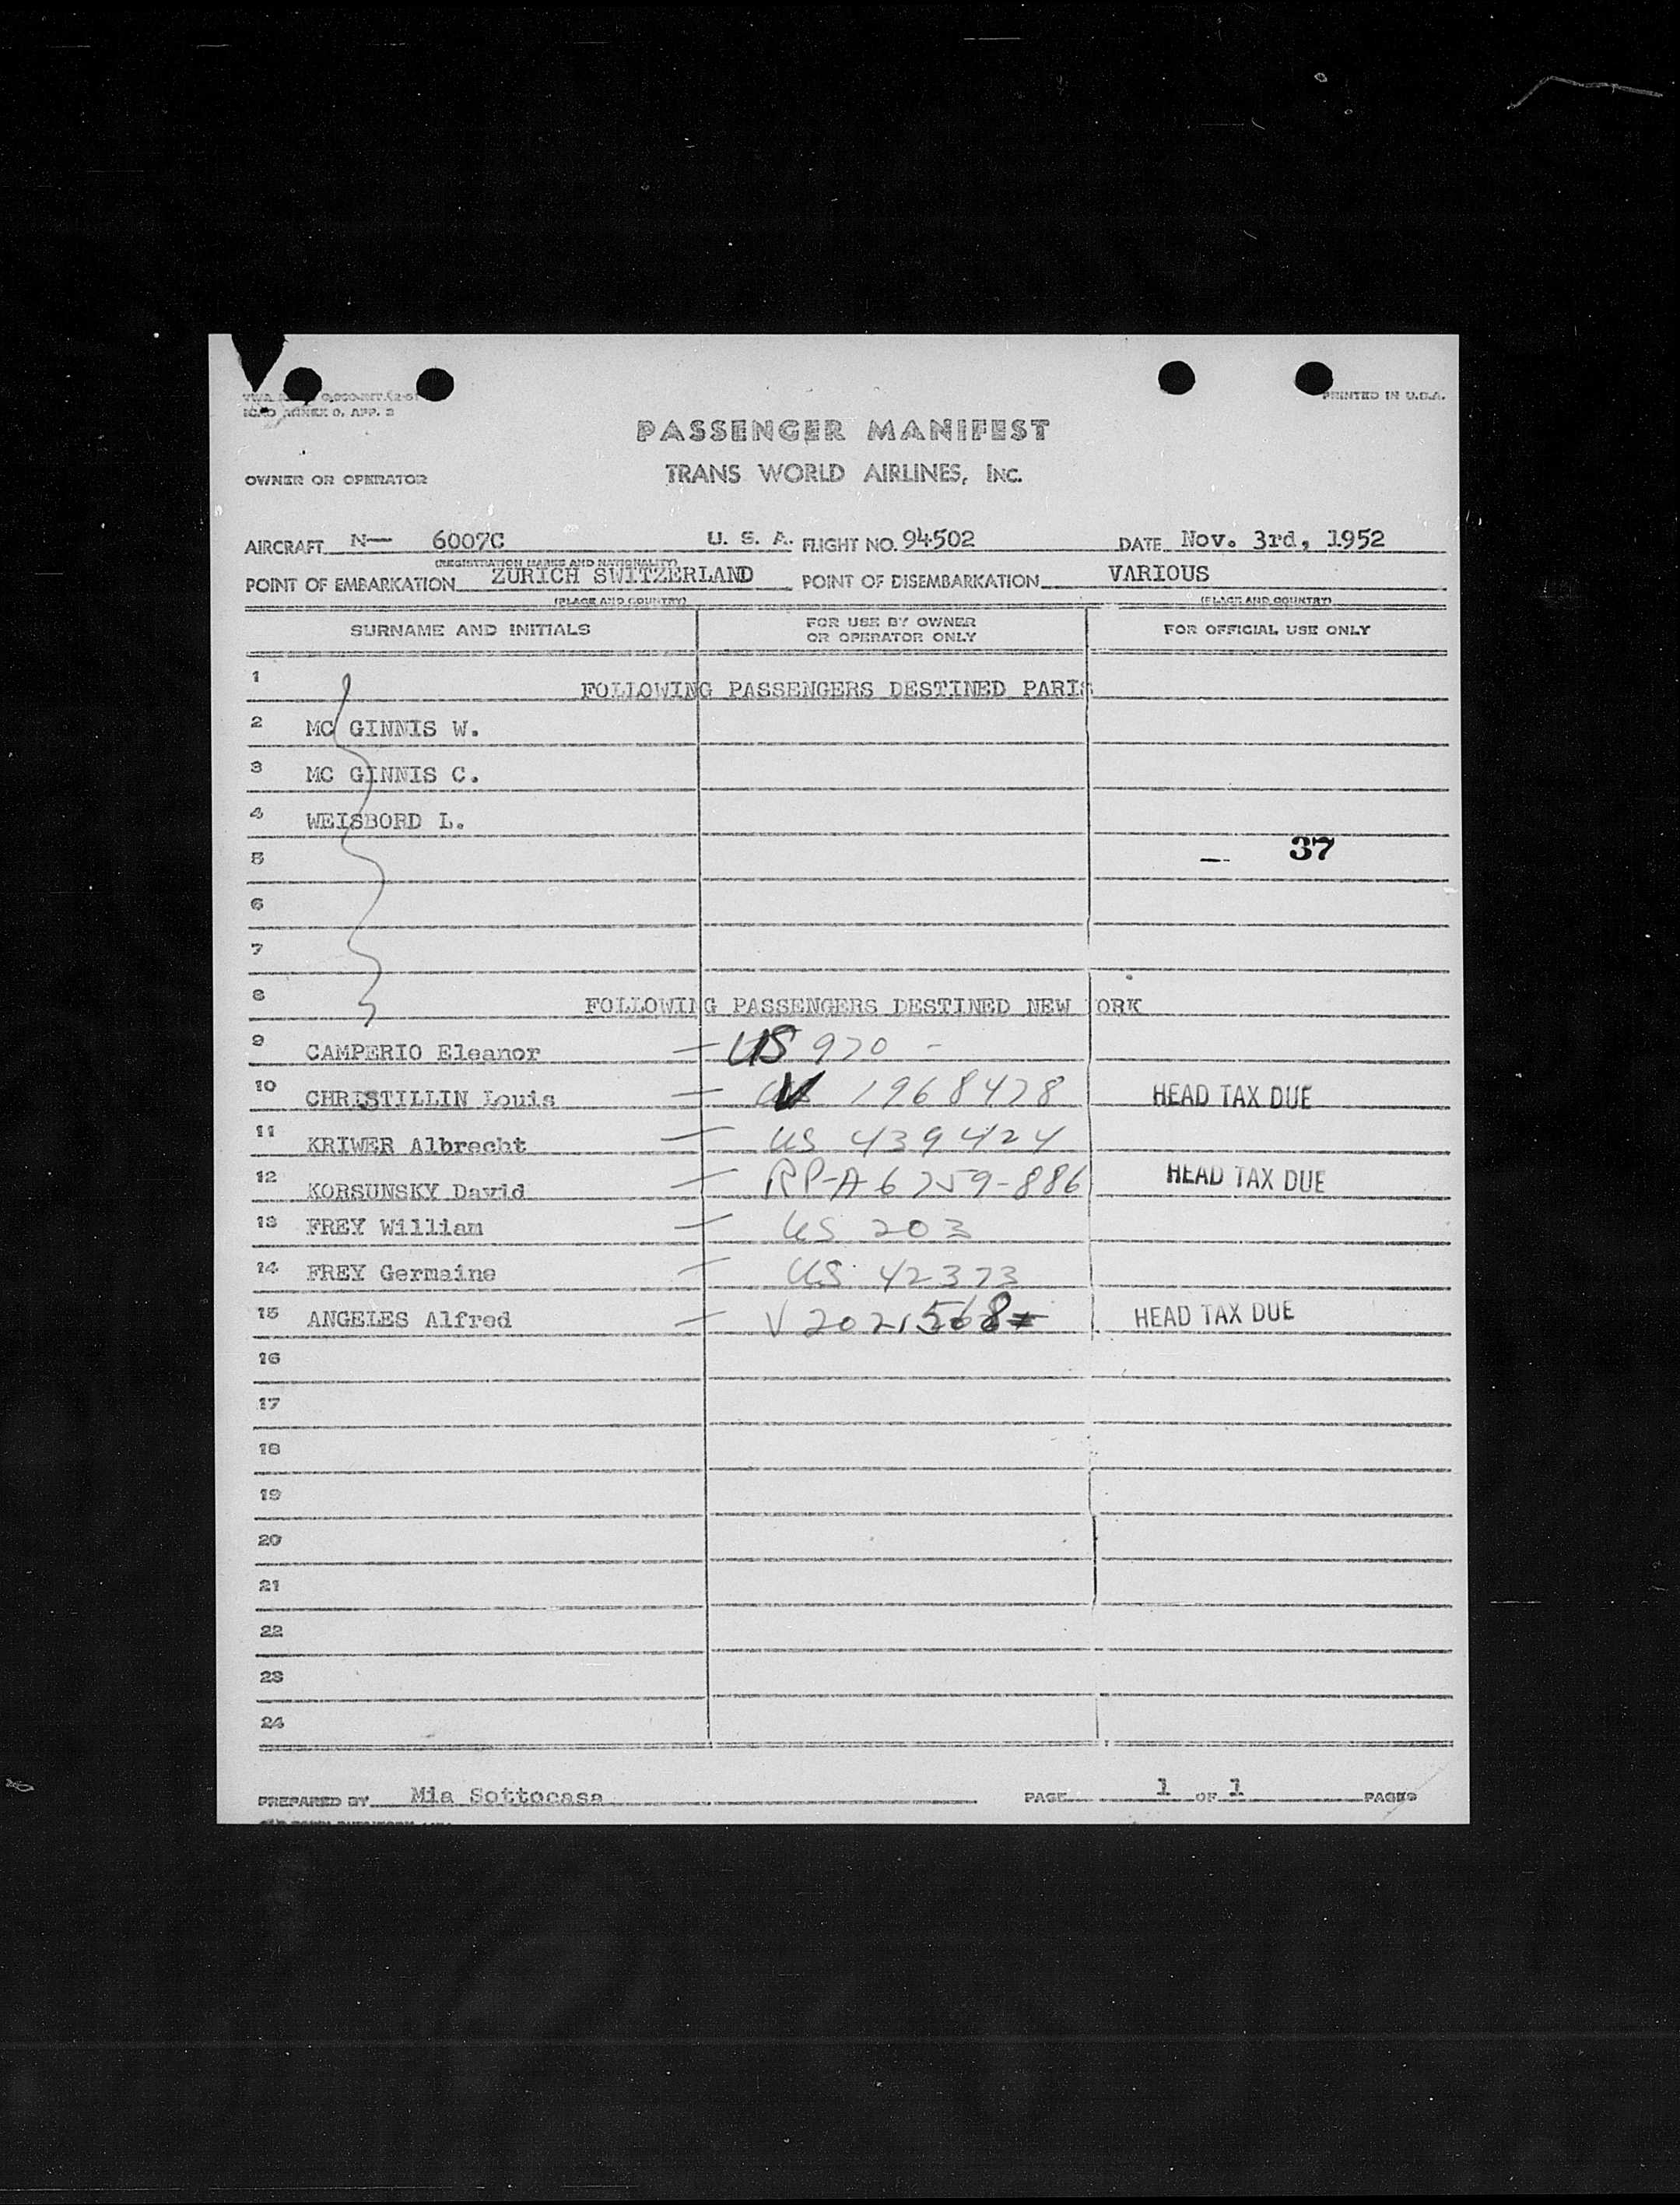 ICAO ANNEX 9, APP. 3
PRINTED IN U.S.A.
PASSENGER MANIFEST
OWNER OR OPERATOR TRANS WORLD AIRLINES, INC.
AIRCRAFT N— 6007C U. S. A. FLIGHT NO. 94502 DATE Nov. 3rd, 1952
(REGISTRATION MARKS AND NATIONALITY)
POINT OF EMBARKATION ZURICH SWITZERLAND POINT OF DISEMBARKATION VARIOUS
(PLACE AND COUNTRY) (PLACE AND COUNTRY)
SURNAME AND INITIALS FOR USE BY OWNER OR OPERATOR ONLY FOR OFFICIAL USE ONLY
1 FOLLOWING PASSENGERS DESTINED PARIS
2 MC GINNIS W.
3 MC GINNIS C.
4 WEISBORD L.
5 — 37
6
7
8 FOLLOWING PASSENGERS DESTINED NEW YORK
9 CAMPERIO Eleanor — US 970 -
10 CHRISTILLIN Louis — V 1968478 HEAD TAX DUE
11 KRIWER Albrecht — US 439424
12 KORSUNSKY David — RP-A6759-886 HEAD TAX DUE
13 FREY William — US 203
14 FREY Germaine — US 42373
15 ANGELES Alfred — V 2021568 HEAD TAX DUE
16
17
18
19
20
21
22
23
24
PREPARED BY Mia Sottocasa PAGE 1 OF 1 PAGES